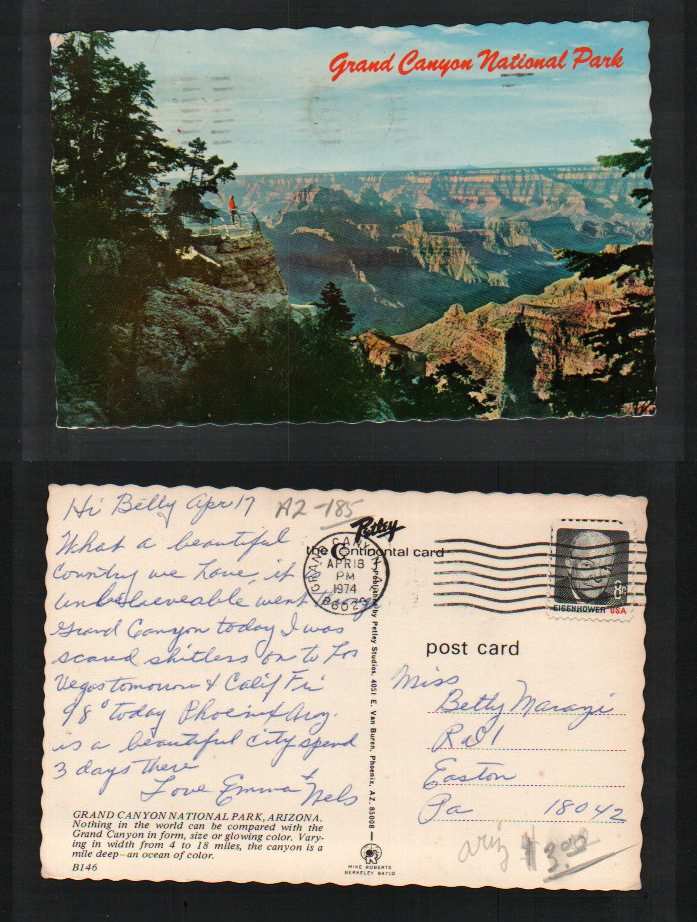 Grand Canyon National Park
Hi Betty Apr 17
A2-185
What a beautiful
Country we Love, it
Unbeleiveable went
Grand Canyon today I was
scared shitless on to Los
Vegas tomorrow & Calif Fri
98° today Phoenix Ariz.
is a beautiful city spend
3 days there
Love Emma &
Nels
GRAND CANYON NATIONAL PARK, ARIZONA.
Nothing in the world can be compared with the
Grand Canyon in form, size or glowing color. Vary-
ing in width from 4 to 18 miles, the canyon is a
mile deep—an ocean of color.
B146
Petley
the Continental card
GRAND CANYON, AZ
APR 18
PM
1974
86023
Published by Petley Studios, 4051 E. Van Buren, Phoenix, AZ. 85008
MIKE ROBERTS
BERKELEY 94710
8¢
EISENHOWER USA
post card
Miss
Betty
Rd 1
Easton
Pa 18042
ariz $3.00